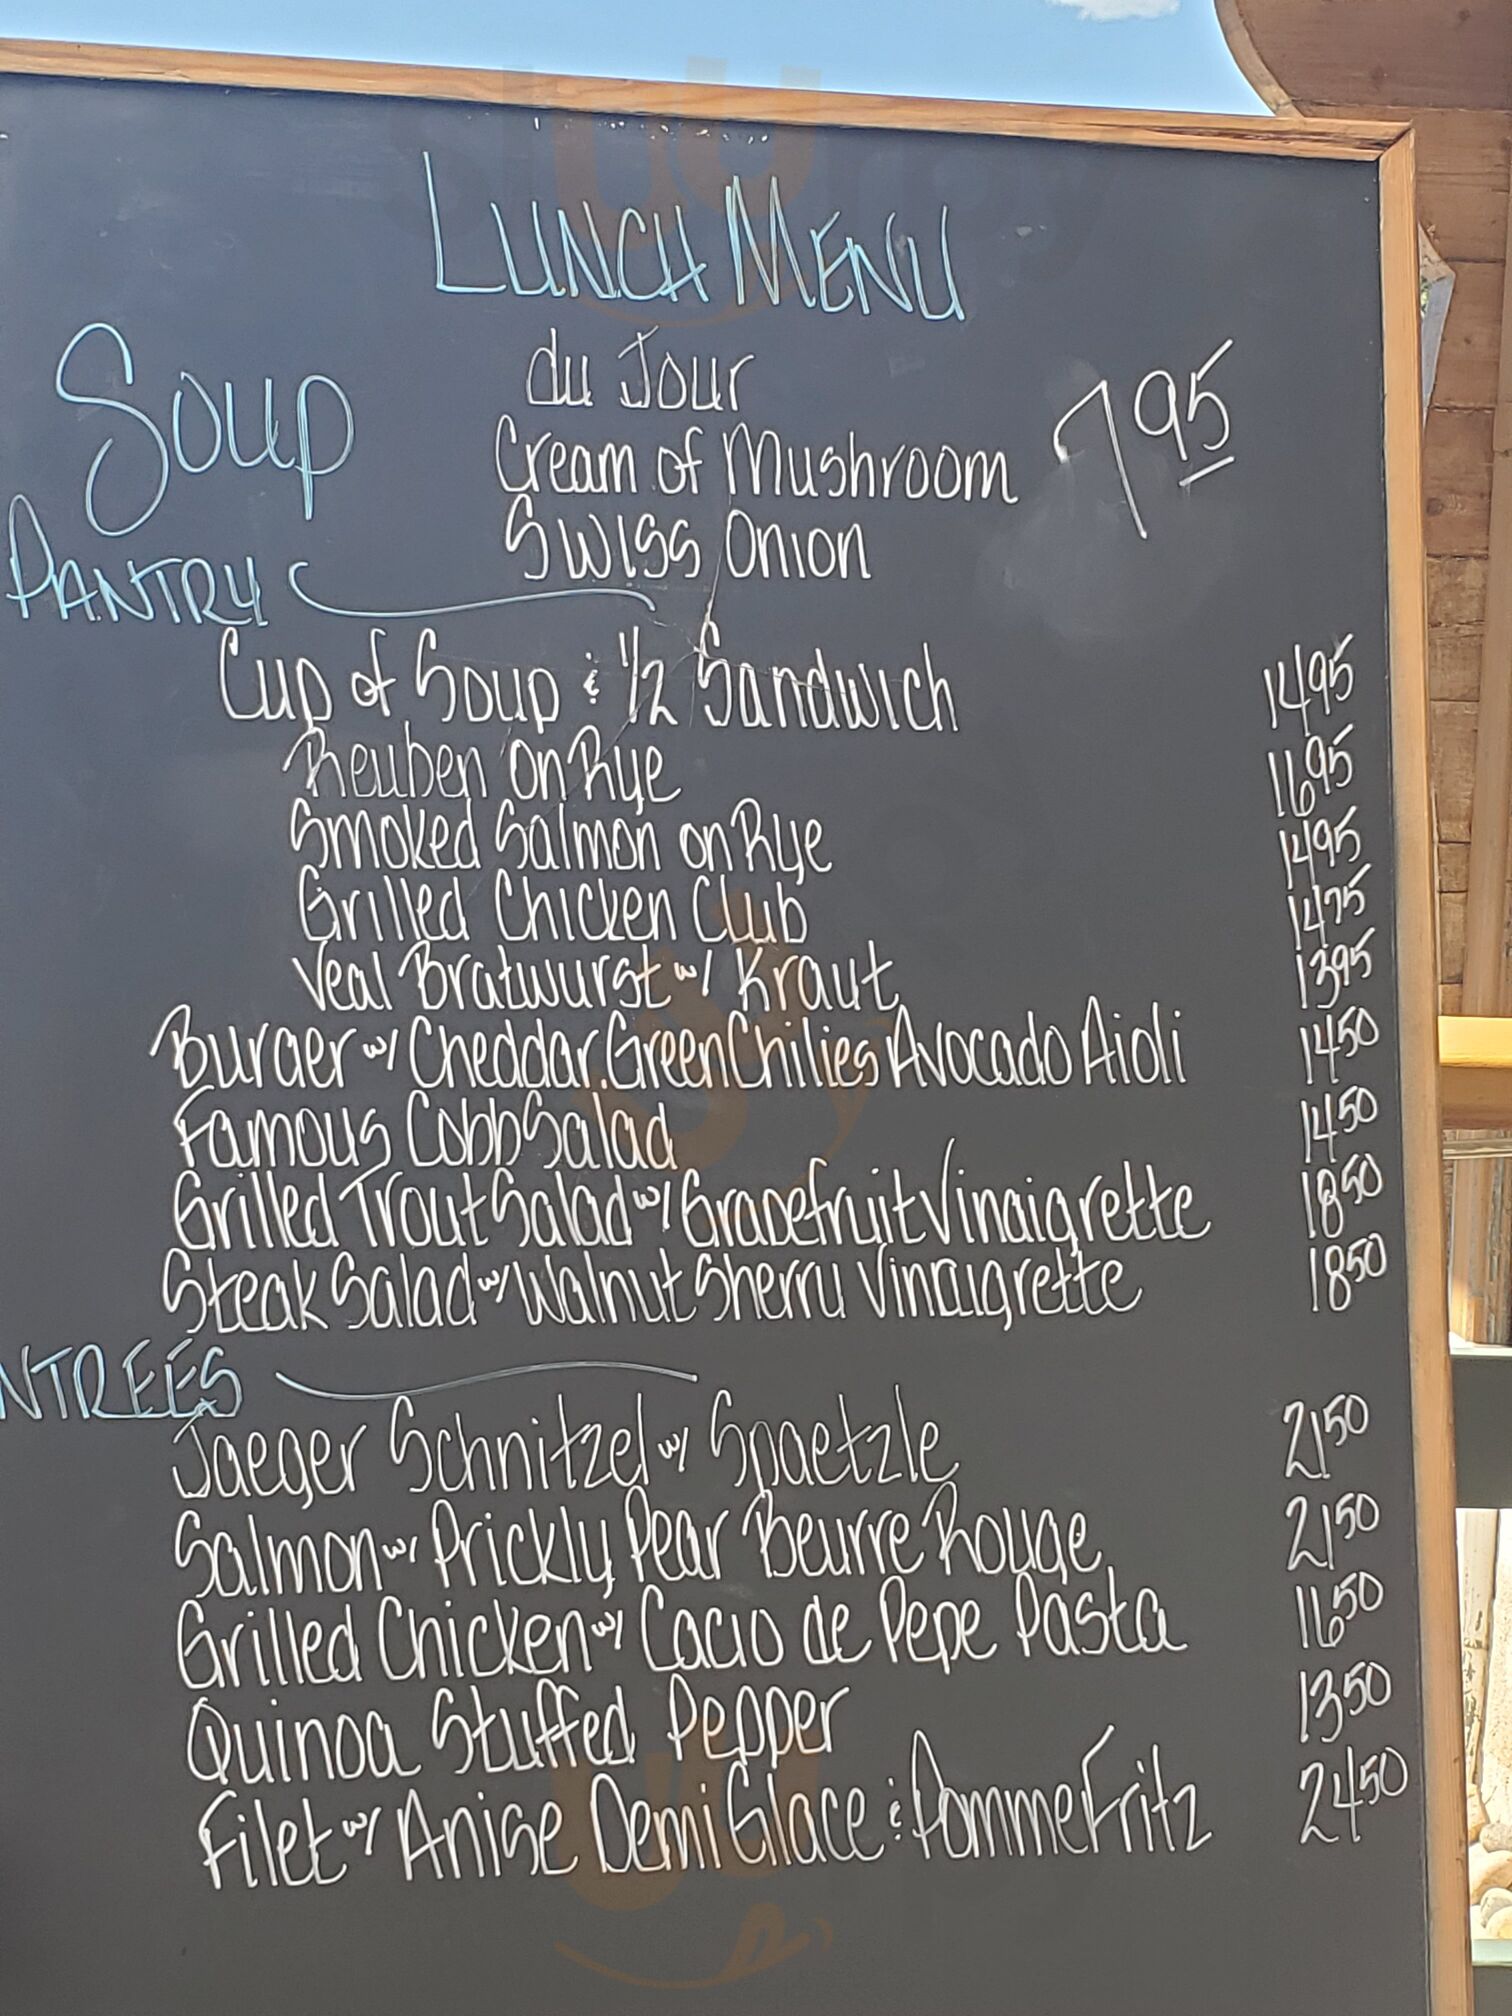 LUNCH MENU
Soup du Jour
Cream of Mushroom 7 95
Swiss Onion
PANTRY
Cup of Soup & 1/2 Sandwich 14 95
Reuben on Rye 16 95
Smoked Salmon on Rye 14 95
Grilled Chicken Club 14 75
Veal Bratwurst w/ Kraut 13 95
Burger w/ Cheddar, Green Chilies Avocado Aioli 14 50
Famous Cobb Salad 14 50
Grilled Trout Salad w/ Grapefruit Vinaigrette 18 50
Steak Salad w/ Walnut Sherry Vinaigrette 18 50
NTREES
Jaeger Schnitzel w/ Spaetzle 21 50
Salmon w/ Prickly Pear Beurre Rouge 21 50
Grilled Chicken w/ Cacio de Pepe Pasta 16 50
Quinoa Stuffed Pepper 13 50
Filet w/ Anise Demi Glace & Pomme Fritz 24 50